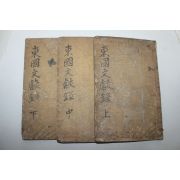 東國文獻錄 上
東國文獻錄 中
東國文獻錄 下